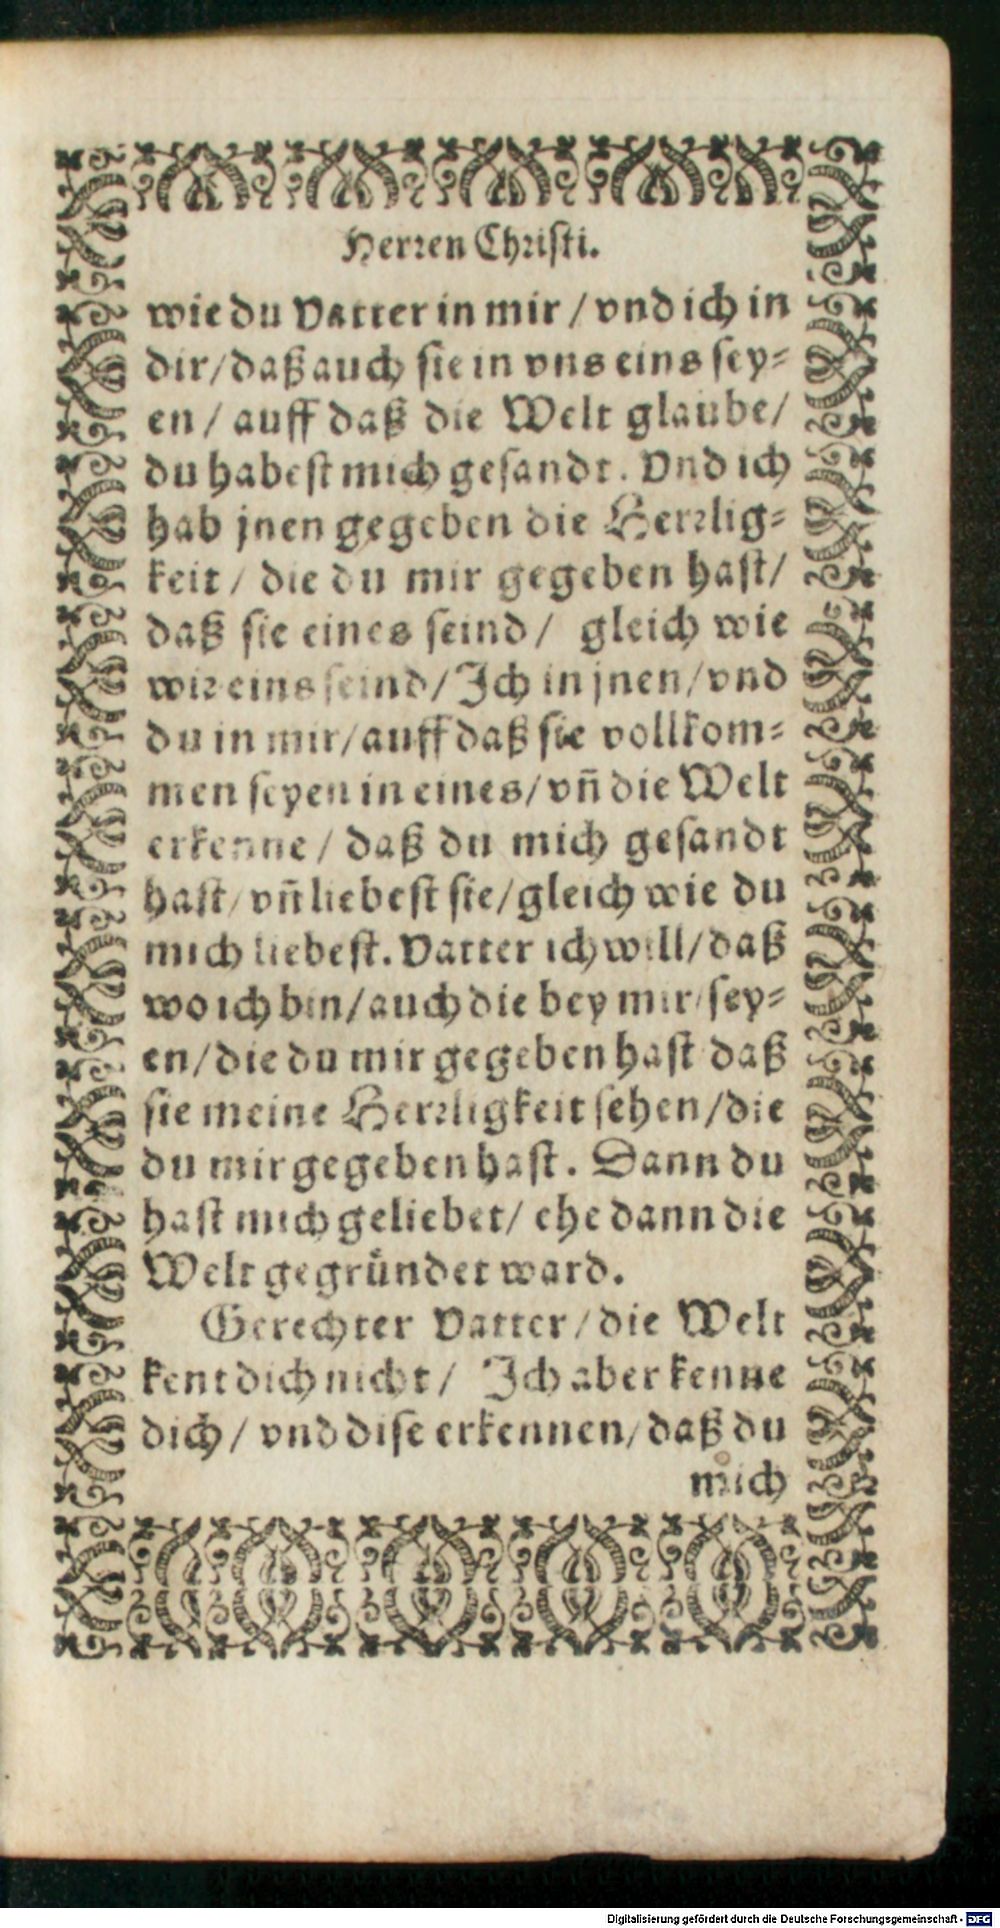 Herren Christi.
wie du Vatter in mir / vnd ich in
dir / daß auch sie in vns eins sey⸗
en / auff daß die Welt glaube /
du habest mich gesandt. Vnd ich
hab jnen gegeben die Herrlig⸗
keit / die du mir gegeben hast /
daß sie eines seind / gleich wie
wir eins seind / Ich in jnen / vnd
du in mir / auff daß sie vollkom⸗
men seyen in eines / vñ die Welt
erkenne / daß du mich gesandt
hast / vñ liebest sie / gleich wie du
mich liebest. Vatter ich will / daß
wo ich bin / auch die bey mir / sey⸗
en / die du mir gegeben hast daß
sie meine Herrligkeit sehen / die
du mir gegeben hast. Dann du
hast mich geliebet / ehe dann die
Welt gegründet ward.
Gerechter Vatter / die Welt
kent dich nicht / Ich aber kenne
dich / vnd dise erkennen / daß du
mich
Digitalisierung gefördert durch die Deutsche Forschungsgemeinschaft - DFG